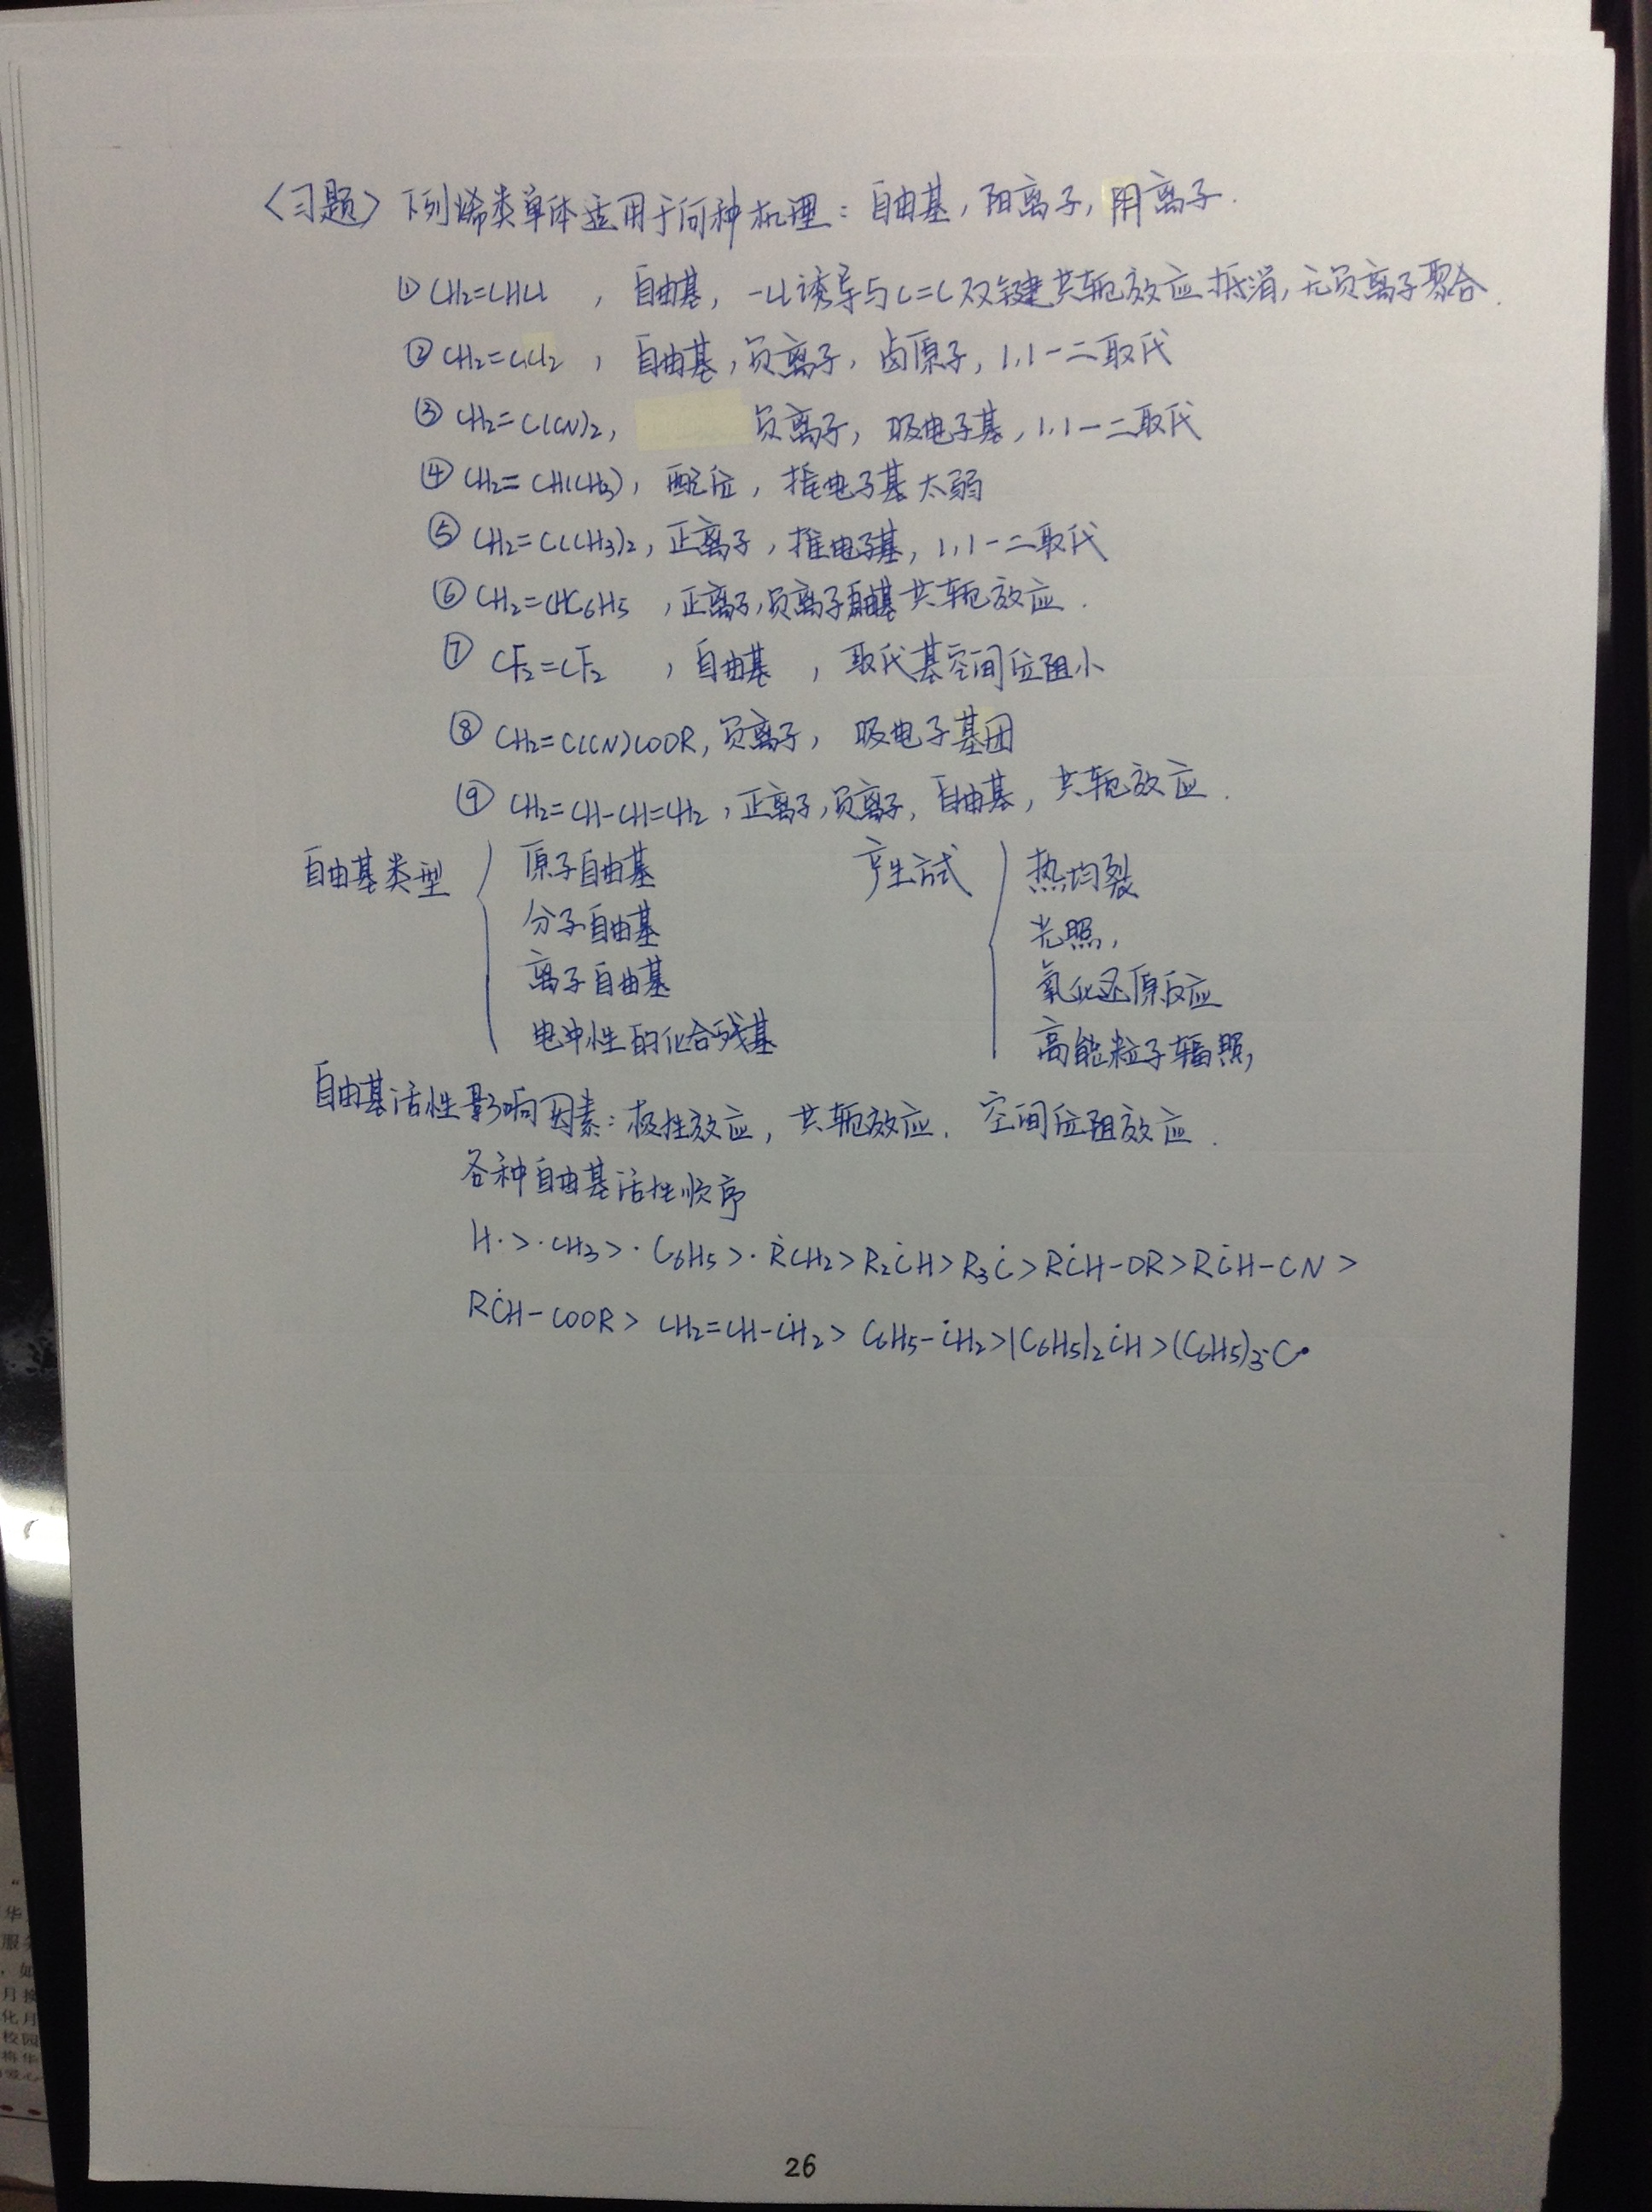 〈习题〉下列烯类单体适用于何种机理：自由基，阳离子，阴离子.
① CH2=CHCl ，自由基，-Cl诱导与C=C双键共轭效应抵消，无负离子聚合.
② CH2=CCl2 ，自由基，负离子，卤原子，1,1-二取代
③ CH2=C(CN)2，负离子，吸电子基，1,1-二取代
④ CH2=CH(CH3)，配位，推电子基太弱
⑤ CH2=C(CH3)2，正离子，推电子基，1,1-二取代
⑥ CH2=CHC6H5 ，正离子，负离子自由基共轭效应.
⑦ CF2=CF2 ，自由基 ，取代基空间位阻小
⑧ CH2=C(CN)COOR，负离子，吸电子基团
⑨ CH2=CH-CH=CH2，正离子，负离子，自由基，共轭效应.
自由基类型 { 原子自由基 产生方式 { 热均裂
分子自由基 光照，
离子自由基 氧化还原反应
电中性的化合残基 高能粒子辐照，
自由基活性影响因素：极性效应，共轭效应、空间位阻效应.
各种自由基活性顺序
H·>·CH3>·C6H5>·ṘCH2>R2ĊH>R3Ċ>RĊH-OR>RĊH-CN>
RĊH-COOR>CH2=CH-ĊH2>C6H5-ĊH2>(C6H5)2ĊH>(C6H5)3-C·
26
“
华
服务
，如
月换
化月
校园
梅华